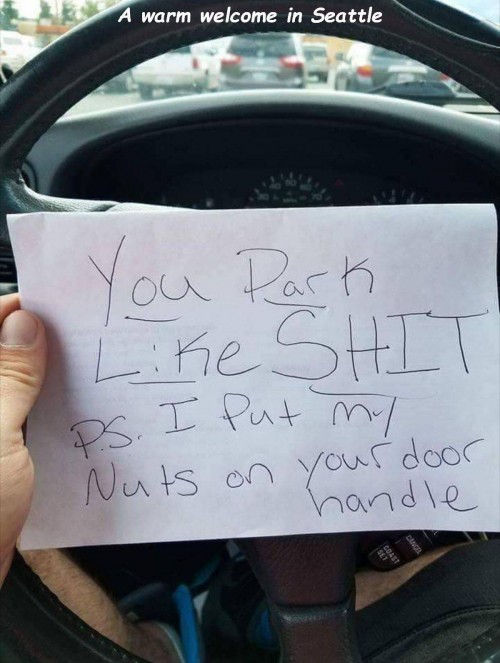 A warm welcome in Seattle
You Park
Like SHIT
P.S. I Put my
Nuts on your door
handle
CANCEL
COAST
SET